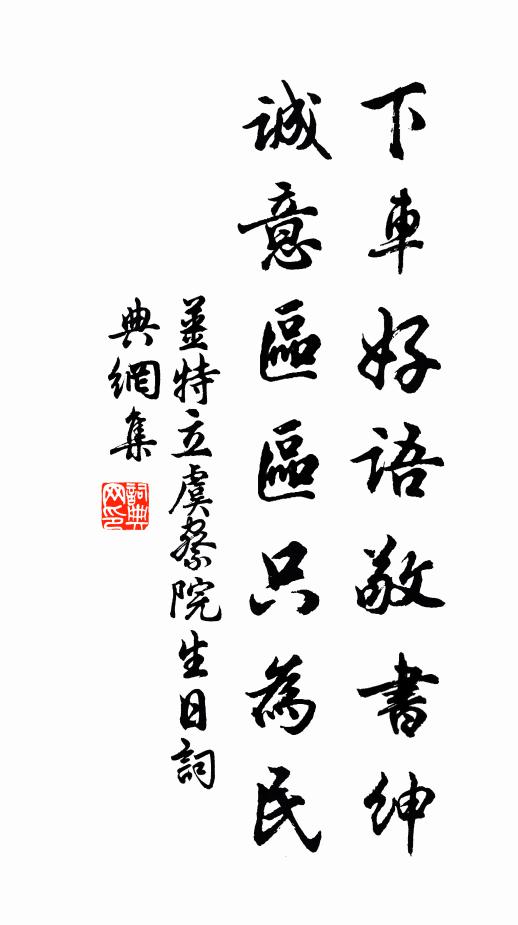 下車好語敬書紳
誠意區區只為民
姜特立虞察院生日詞
典網集
詞典网印